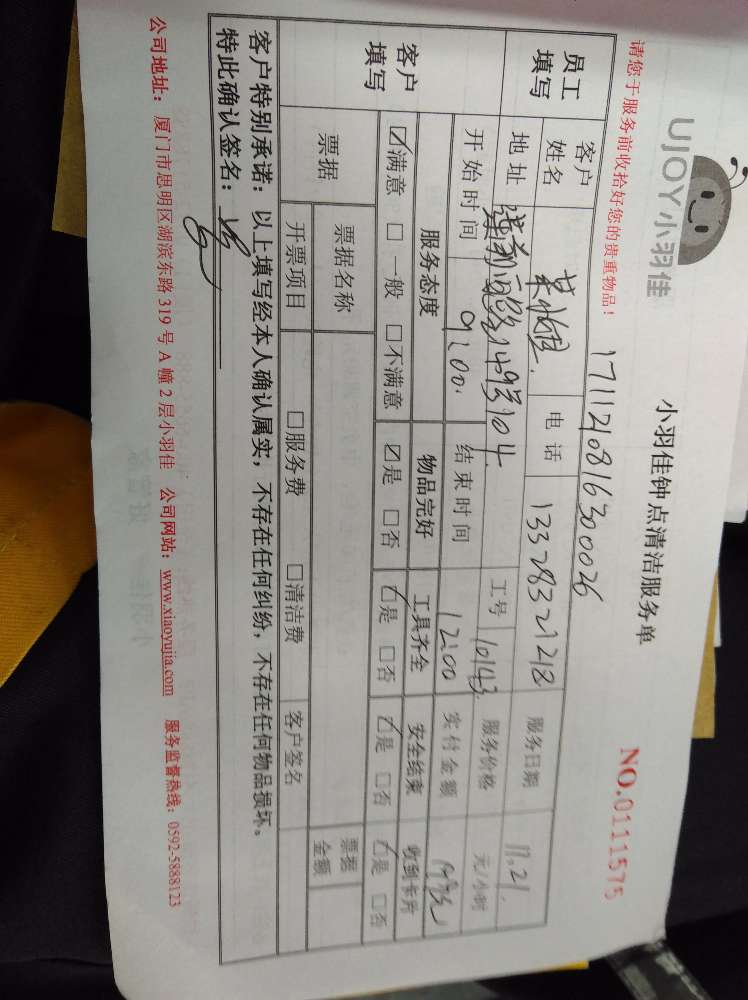 UJOY小羽佳
小羽佳钟点清洁服务单
NO.0111575
请您于服务前收拾好您的贵重物品！
1711210816300026
员工填写 客户姓名 电话 13328321218 服务日期 11.21
地址 104 工号 10143 服务价格 元/小时
开始时间 9:00 结束时间 12:00 实付金额
客户填写 服务态度 物品完好 工具齐全 安全结束 收到卡片
☑满意 □一般 □不满意 ☑是 □否 ☑是 □否 ☑是 □否 ☑是 □否
票据 票据名称 票据金额
开票项目 □服务费 □清洁费 客户签名
客户特别承诺：以上填写经本人确认属实，不存在任何纠纷，不存在任何物品损坏。
特此确认签名：
公司地址：厦门市思明区湖滨东路319号A幢2层小羽佳 公司网站：www.xiaoyujia.com 服务监督热线：0592-5888123